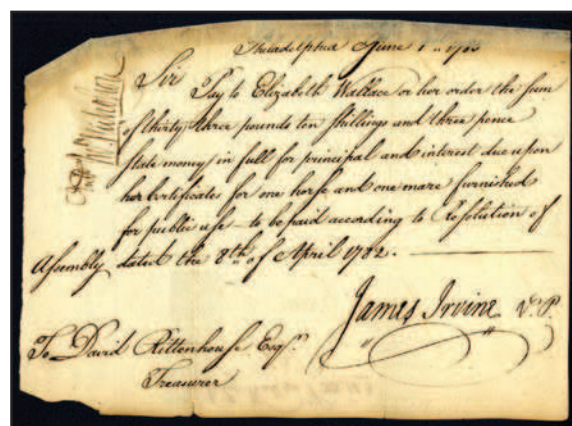 Philadelphia June 1
Sir
Pay to Elizabeth Wallace or her order the sum
of thirty three pounds ten shillings and three pence
State money in full for principal and interest due upon
her Certificates for one horse and one mare furnished
for public use – to be paid according to Resolution of
Assembly dated the 8th of April 1782.
James Irvine V.P.
To David Rittenhouse Esqr.
Treasurer
Jno Nicholson